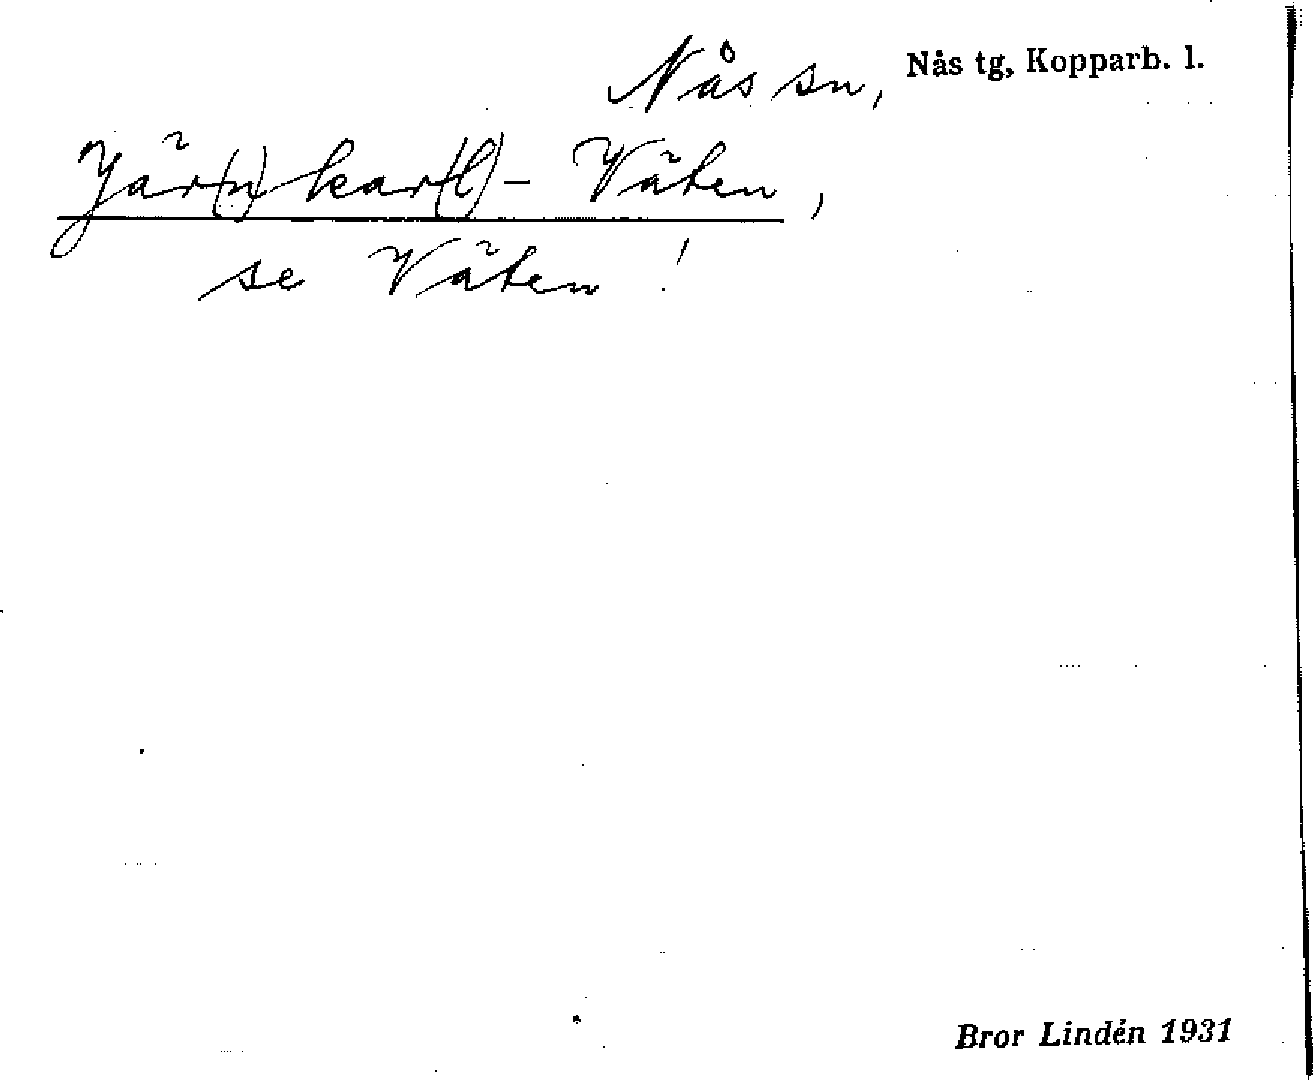 Nås sn, Nås tg, Kopparb. l.
Jär(n)kar(l)-Väten,
se Väten!
Bror Lindén 1931